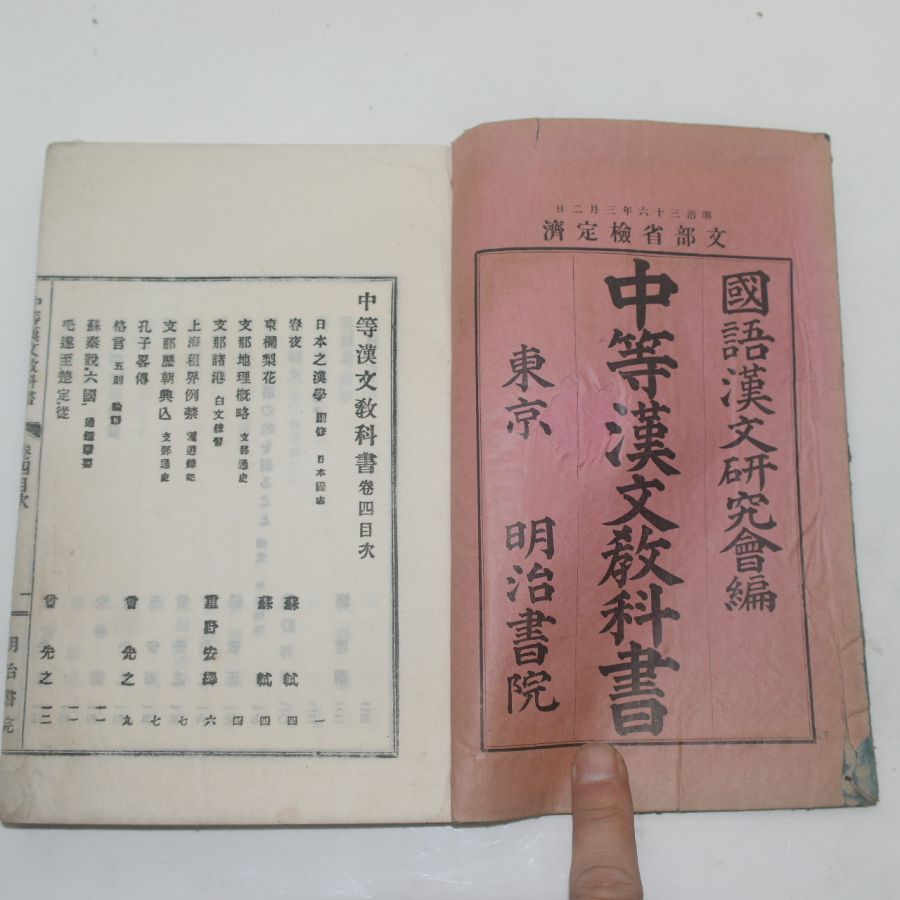 明治三十六年三月二日
文部省檢定濟
國語漢文研究會編
中等漢文敎科書
東京 明治書院
中等漢文敎科書卷四目次
日本之漢學 副修 日本國志 一
春夜 蘇軾 四
東欄梨花 蘇軾 四
支那地理槪略 支那通史 四
支那諸港 白文練習 重野安繹 六
上海租界例禁 滬遊雜記 七
支那歷朝興亡 支那通史 七
孔子畧傳 曾先之 九
格言 五則 論語 一一
蘇秦說六國 通鑑擥要 一一
毛遂至楚定從 曾先之 一二
中等漢文敎科書 卷四目次 一 明治書院